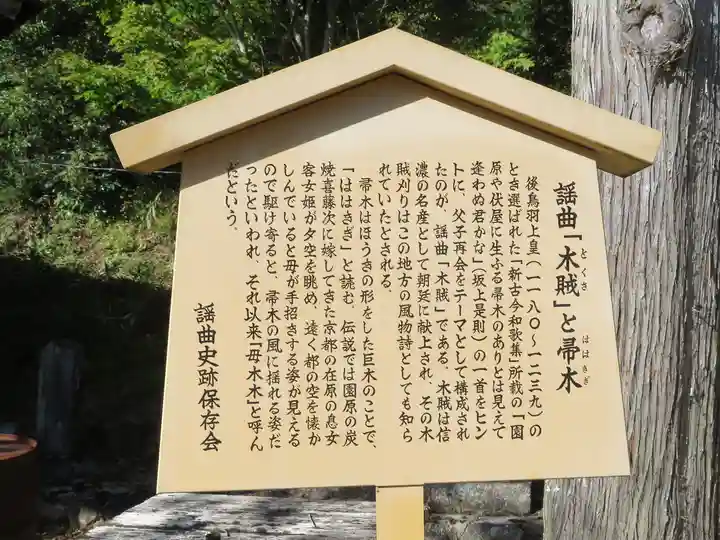 謡曲「木賊」と帚木
とくさ
ははきぎ
後鳥羽上皇(一一八〇〜一二三九)の
とき選ばれた「新古今和歌集」所載の「園
原や伏屋に生ふる帚木のありとは見えて
逢わぬ君かな」(坂上是則)の一首をヒン
トに、父子再会をテーマとして構成され
たのが、謡曲「木賊」である。木賊は信
濃の名産として朝廷に献上され、その木
賊刈りはこの地方の風物詩としても知ら
れていたとされる。
帚木はほうきの形をした巨木のことで、
「ははきぎ」と読む。伝説では園原の炭
焼喜藤次に嫁してきた京都の在原の息女
客女姫が夕空を眺め、遠く都の空を懐か
しんでいると母が手招きする姿が見える
ので駆け寄ると、帚木の風に揺れる姿だ
ったといわれ、それ以来「母木木」と呼ん
だという。
謡曲史跡保存会